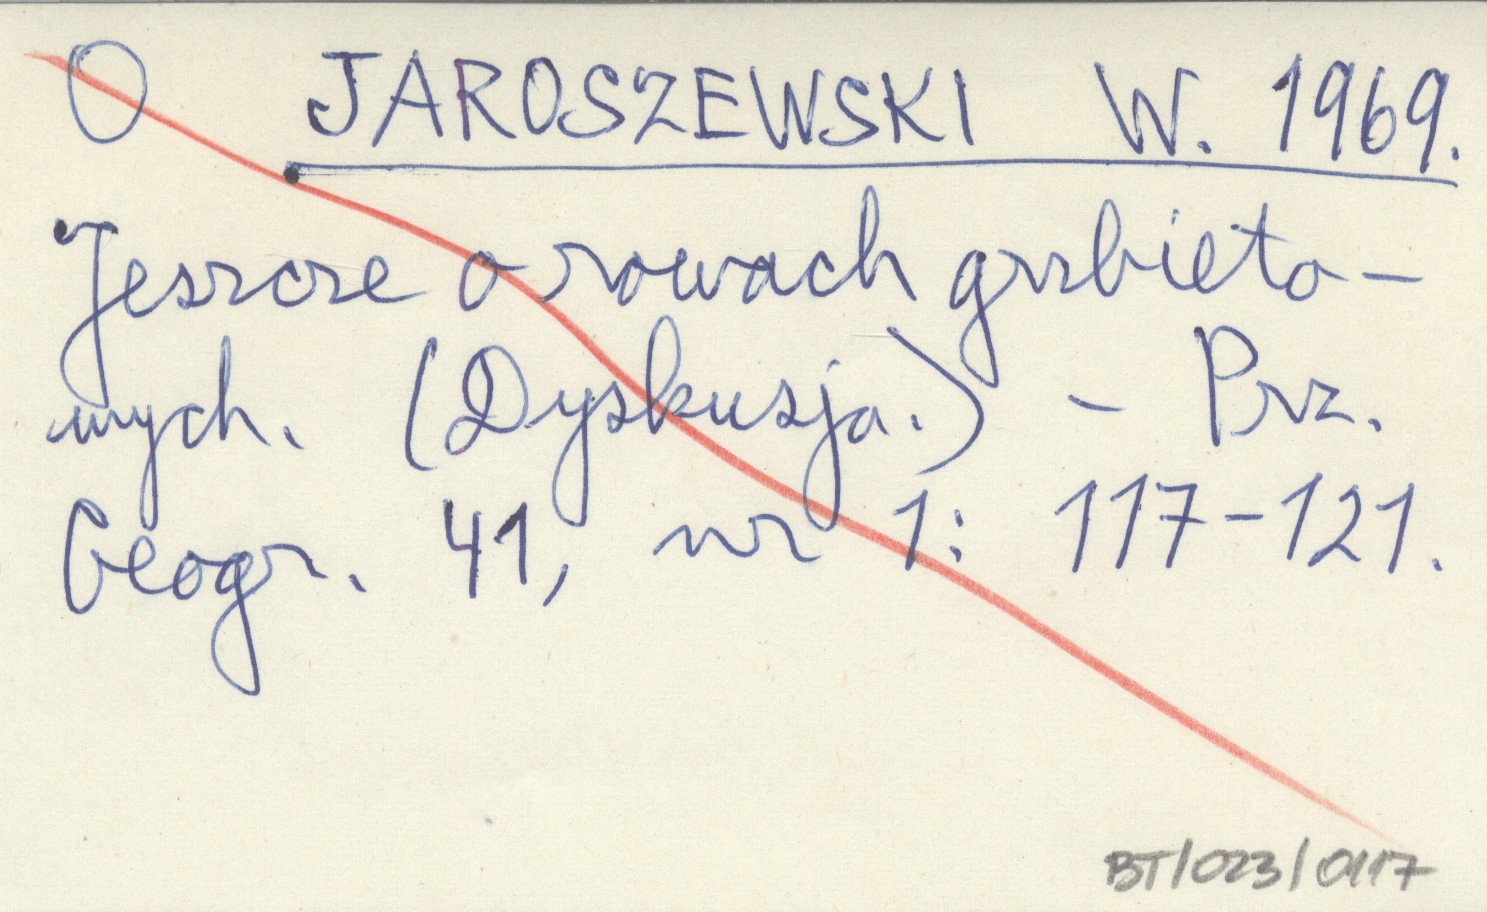 O JAROSZEWSKI W. 1969.
Jeszcze o rowach grzbieto-
wych. (Dyskusja.) - Prz.
Geogr. 41, nr 1: 117-121.
BT/023/0117